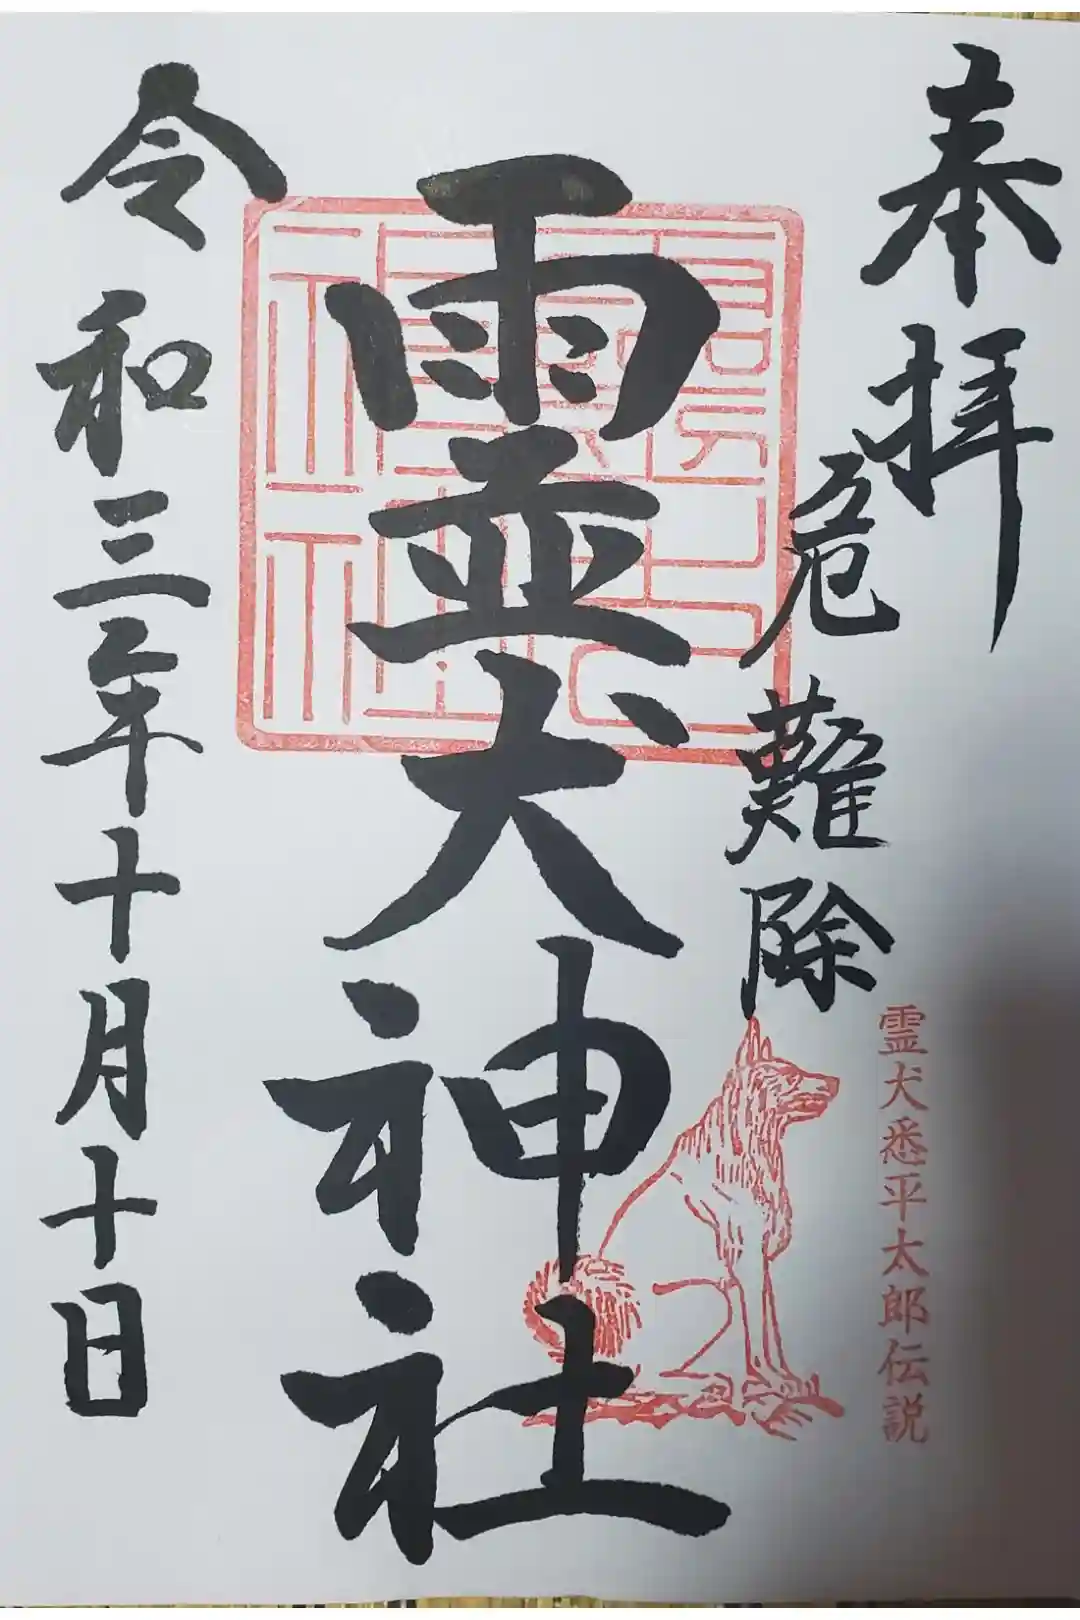 奉拝
危難除
霊犬悉平太郎伝説
霊犬神社
令和三年十月十日